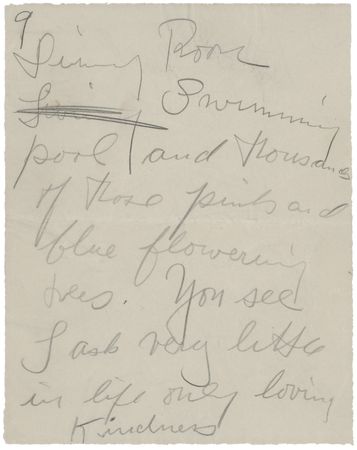 9
Dining Room
Living Swimming
pool and thousands
of those pink and
blue flowering
trees. You see
I ask very little
in life only loving
Kindness